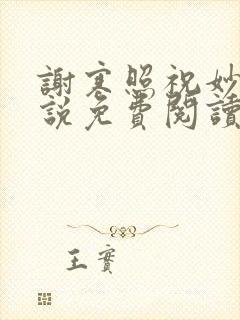 謝寒照祝妙
說免費閱讀
王實